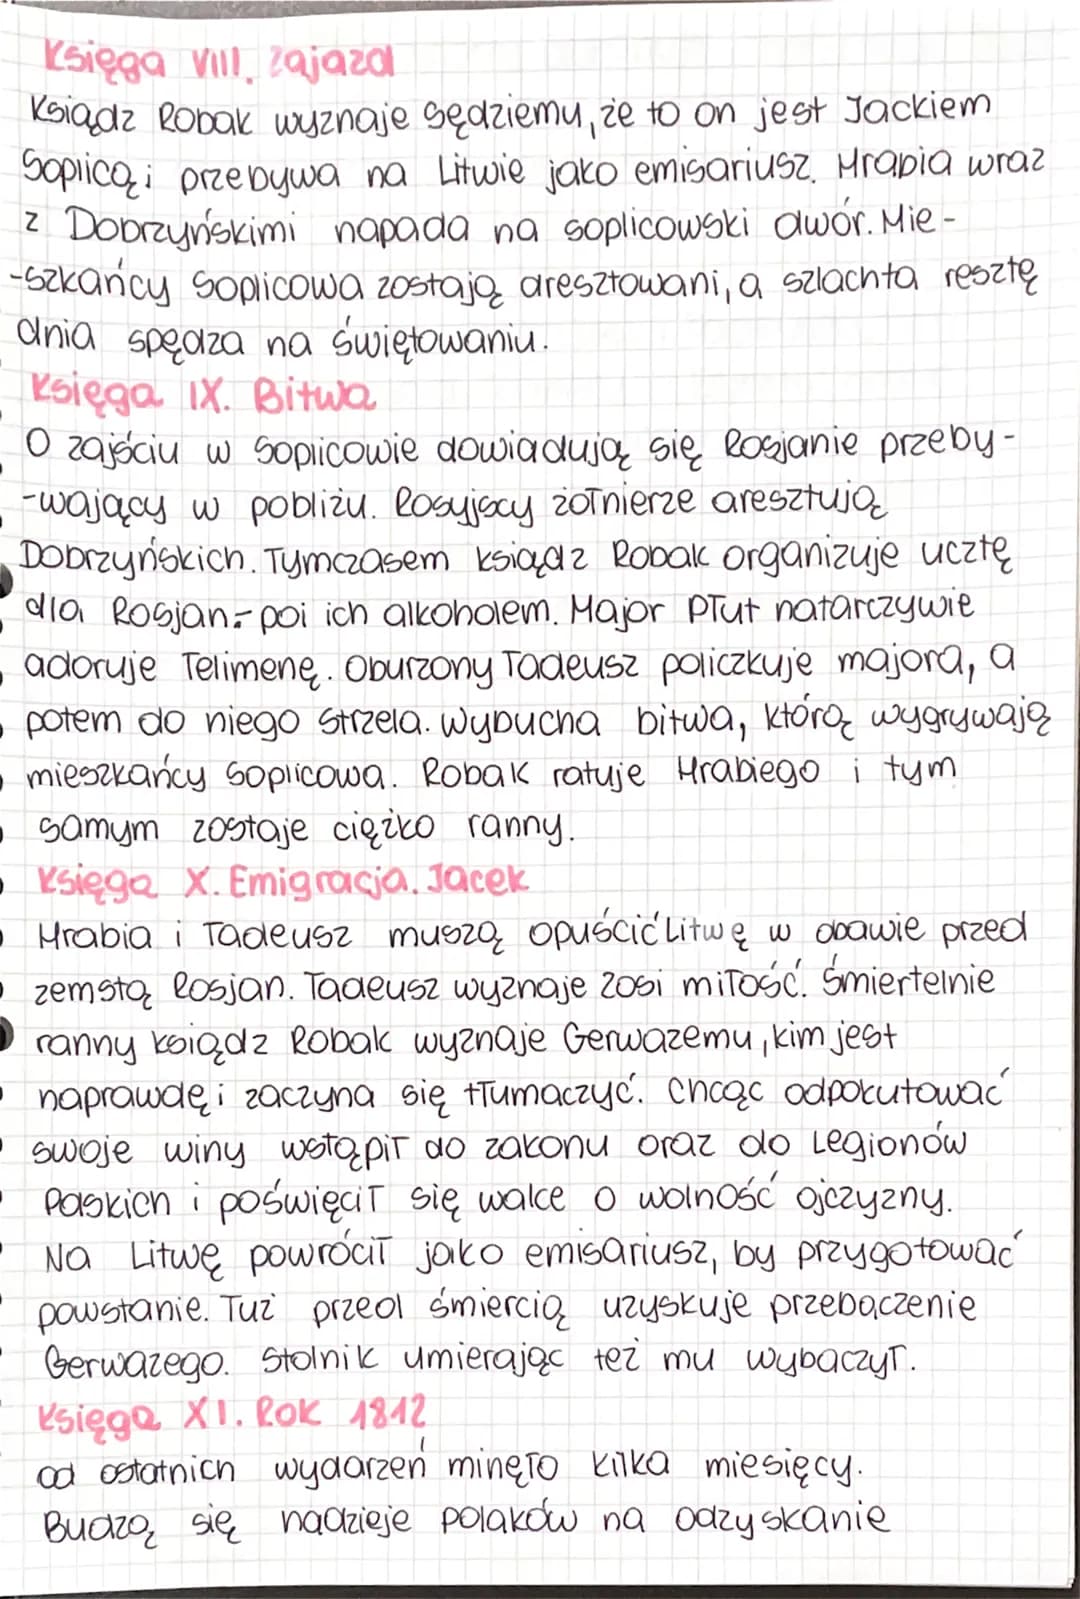 Księga VIII. Zajazd
Ksiądz Robak wyznaje Sędziemu, że to on jest Jackiem
Soplicą i przebywa na Litwie jako emisariusz. Hrabia wraz
z Dobrzyńskimi napada na soplicowski dwór. Mie-
-szkańcy Soplicowa zostają aresztowani, a szlachta resztę
dnia spędza na świętowaniu.
Księga IX. Bitwa
O zajściu w Soplicowie dowiadują się Rosjanie przeby-
-wający w pobliżu. Rosyjscy żołnierze aresztują
Dobrzyńskich. Tymczasem ksiądz Robak organizuje ucztę
dla Rosjan - poi ich alkoholem. Major Płut natarczywie
adoruje Telimenę. Oburzony Tadeusz policzkuje majora, a
potem do niego strzela. Wybucha bitwa, którą wygrywają
mieszkańcy Soplicowa. Robak ratuje Hrabiego i tym
samym zostaje ciężko ranny.
Księga X. Emigracja. Jacek
Hrabia i Tadeusz muszą opuścić Litwę w obawie przed
zemstą Rosjan. Tadeusz wyznaje Zosi miłość. Śmiertelnie
ranny ksiądz Robak wyznaje Gerwazemu, kim jest
naprawdę i zaczyna się tłumaczyć. Chcąc odpokutować
swoje winy wstąpił do zakonu oraz do Legionów
Polskich i poświęcił się walce o wolność ojczyzny.
Na Litwę powrócił jako emisariusz, by przygotować
powstanie. Tuż przed śmiercią uzyskuje przebaczenie
Gerwazego. Stolnik umierając też mu wybaczył.
Księga XI. Rok 1812
od ostatnich wydarzeń minęło kilka miesięcy.
Budzą się nadzieje polaków na odzyskanie